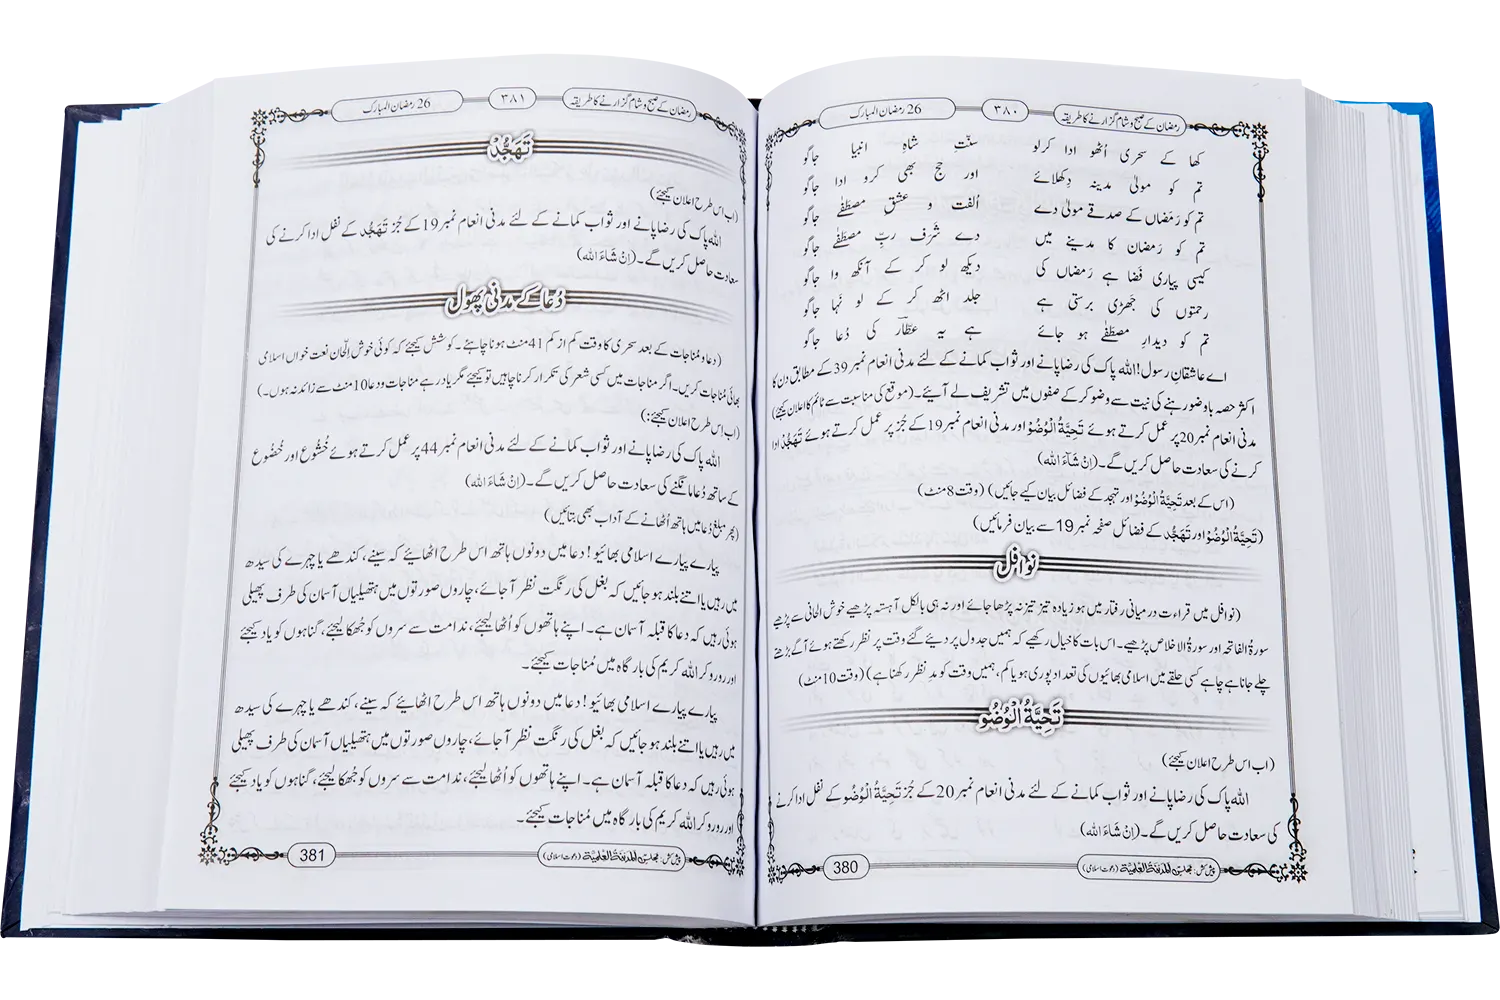 رمضان کے صبح و شام گزارنے کا طریقہ ۳۸۰ 26 رمضان المبارک
کھا کے سحری اُٹھو ادا کرلو سنّت شاہِ انبیا جاگو
تم کو مولیٰ مدینہ دِکھلائے اور حج بھی کرو ادا جاگو
تم کو رَمَضاں کے صدقے مولیٰ دے اُلفت و عشقِ مصطَفٰے جاگو
تم کو رَمضان کا مدینے میں دے شَرَف ربِّ مصطَفٰے جاگو
کیسی پیاری فَضا ہے رَمَضاں کی دیکھ لو کر کے آنکھ وا جاگو
رحمتوں کی جَھڑی برستی ہے جلد اٹھ کر کے لو نَہا جاگو
تم کو دیدارِ مصطَفٰے ہو جائے ہے یہ عطّار کی دُعا جاگو
اے عاشقانِ رسول! اللہ پاک کی رضا پانے اور ثواب کمانے کے لئے مدنی انعام نمبر 39 کے مطابق دن کا
اکثر حصہ باوضو رہنے کی نیت سے وضو کر کے صفوں میں تشریف لے آیئے۔ (موقع کی مناسبت سے ٹائم کا اعلان کیجئے)
مدنی انعام نمبر 20 پر عمل کرتے ہوئے تَحِیَّۃُ الْوُضُوْ اور مدنی انعام نمبر 19 کے جُز پر عمل کرتے ہوئے تَہَجُّدْ ادا
کرنے کی سعادت حاصل کریں گے۔ (اِنْ شَآءَ اللہ)
(اس کے بعد تَحِیَّۃُ الْوُضُوْ اور تہجد کے فضائل بیان کیے جائیں) (وقت 8 منٹ)
(تَحِیَّۃُ الْوُضُوْ اور تَہَجُّد کے فضائل صفحہ نمبر 19 سے بیان فرمائیں)
نوافل
(نوافل میں قراءت درمیانی رفتار میں ہو زیادہ تیز تیز نہ پڑھا جائے اور نہ ہی بالکل آہستہ پڑھیے خوش الحانی سے پڑھیے
سورۃُ الفاتحہ اور سورۃُ الاخلاص پڑھیے۔ اس بات کا خیال رکھیے کہ ہمیں جدول پر دیئے گئے وقت پر نظر رکھتے ہوئے آگے بڑھتے
چلے جانا ہے چاہے کسی حلقے میں اسلامی بھائیوں کی تعداد پوری ہو یا کم، ہمیں وقت کو مدِّ نظر رکھنا ہے) (وقت 10 منٹ)
تَحِیَّۃُ الْوُضُوْ
(اب اس طرح اعلان کیجئے)
اللہ پاک کی رضا پانے اور ثواب کمانے کے لئے مدنی انعام نمبر 20 کے جُز تَحِیَّۃُ الْوُضُو کے نفل ادا کرنے
کی سعادت حاصل کریں گے۔ (اِنْ شَآءَ اللہ)
پیش کش: مجلس المدینۃ العلمیۃ (دعوت اسلامی) 380
رمضان کے صبح و شام گزارنے کا طریقہ ۳۸۱ 26 رمضان المبارک
تَہَجُّدْ
(اب اس طرح اعلان کیجئے)
اللہ پاک کی رضا پانے اور ثواب کمانے کے لئے مدنی انعام نمبر 19 کے جُز تَہَجُّد کے نفل ادا کرنے کی
سعادت حاصل کریں گے۔ (اِنْ شَآءَ اللہ)
دُعا کے مدنی پھول
(دعا و مُناجات کے بعد سحری کا وقت کم از کم 41 منٹ ہونا چاہئے۔ کوشش کیجئے کہ کوئی خوش الحان نعت خواں اسلامی
بھائی مُناجات کریں۔ اگر مناجات میں کسی شعر کی تکرار کرنا چاہیں تو کیجئے مگر یاد رہے مناجات و دعا 10 منٹ سے زائد نہ ہوں۔)
(اب اس طرح اعلان کیجئے:)
اللہ پاک کی رضا پانے اور ثواب کمانے کے لئے مدنی انعام نمبر 44 پر عمل کرتے ہوئے خُشُوع اور خُضُوع
کے ساتھ دُعا مانگنے کی سعادت حاصل کریں گے۔ (اِنْ شَآءَ اللہ)
(پھر مبلغ دُعا میں ہاتھ اُٹھانے کے آداب بھی بتائیں)
پیارے پیارے اسلامی بھائیو! دعا میں دونوں ہاتھ اس طرح اٹھایئے کہ سینے، کندھے یا چہرے کی سیدھ
میں رہیں یا اتنے بلند ہو جائیں کہ بغل کی رنگت نظر آ جائے، چاروں صورتوں میں ہتھیلیاں آسمان کی طرف پھیلی
ہوئی رہیں کہ دعا کا قبلہ آسمان ہے۔ اپنے ہاتھوں کو اُٹھا لیجئے، ندامت سے سروں کو جُھکا لیجئے، گناہوں کو یاد کیجئے
اور رو رو کر اللہ کریم کی بارگاہ میں مُناجات کیجئے۔
پیارے پیارے اسلامی بھائیو! دعا میں دونوں ہاتھ اس طرح اٹھایئے کہ سینے، کندھے یا چہرے کی سیدھ
میں رہیں یا اتنے بلند ہو جائیں کہ بغل کی رنگت نظر آ جائے، چاروں صورتوں میں ہتھیلیاں آسمان کی طرف پھیلی
ہوئی رہیں کہ دعا کا قبلہ آسمان ہے۔ اپنے ہاتھوں کو اُٹھا لیجئے، ندامت سے سروں کو جُھکا لیجئے، گناہوں کو یاد کیجئے
اور رو رو کر اللہ کریم کی بارگاہ میں مُناجات کیجئے۔
پیش کش: مجلس المدینۃ العلمیۃ (دعوت اسلامی) 381